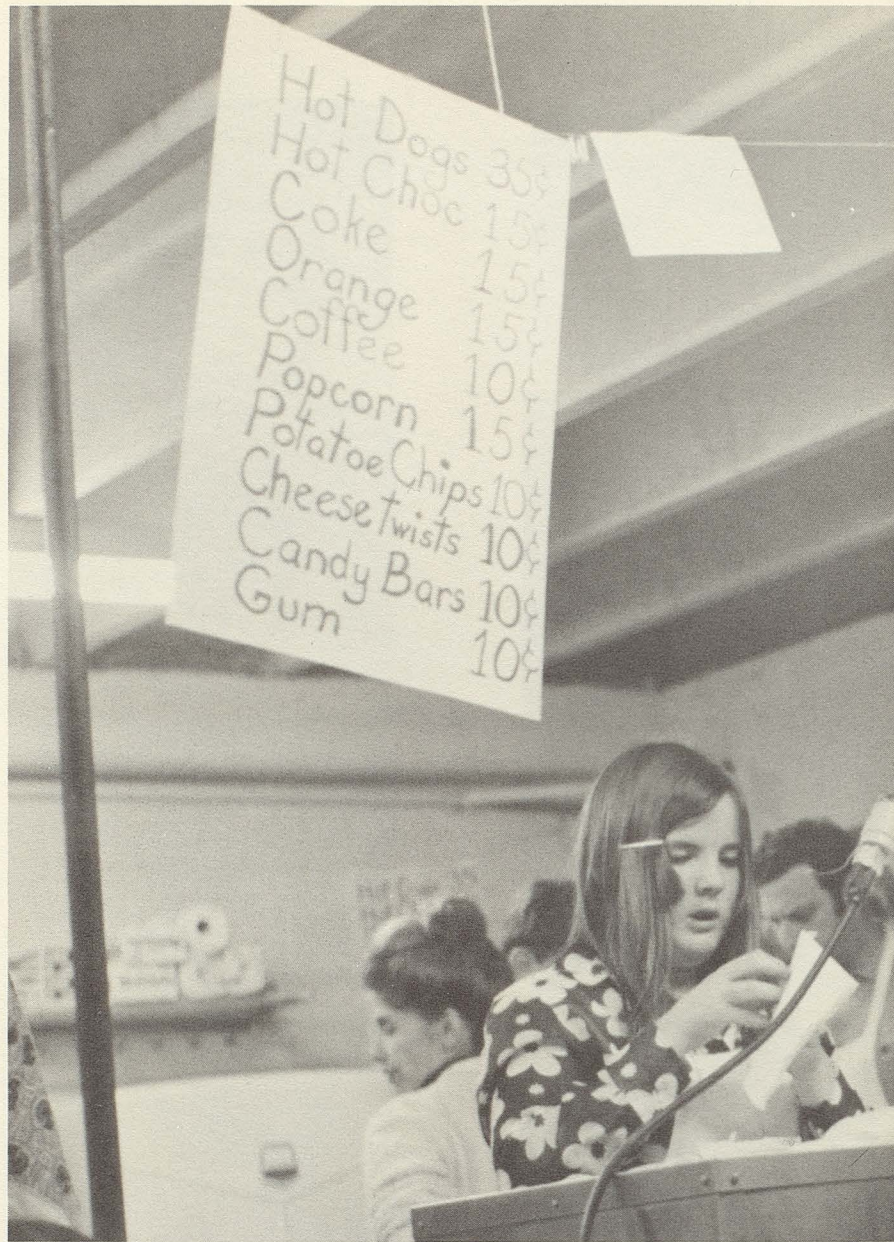 Hot Dogs 35¢
Hot Choc 15¢
Coke 15¢
Orange 15¢
Coffee 10¢
Popcorn 15¢
Potatoe Chips 10¢
Cheese twists 10¢
Candy Bars 10¢
Gum 10¢